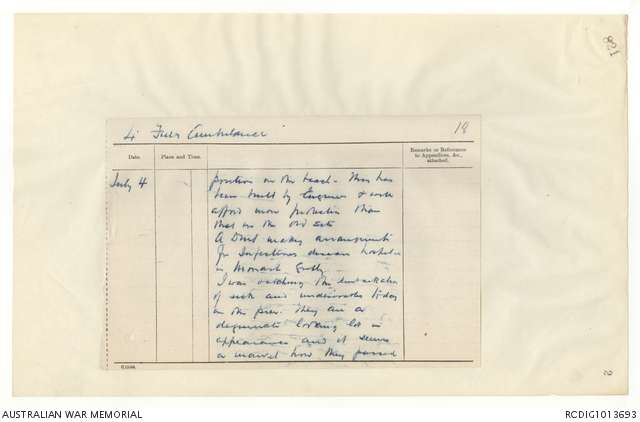 138
4 Field Ambulance
19
Date.
Place and Time.
Remarks or References
to Appendices, &c.,
attached.
July 4
position on the beach. This has
been built by Engineers & will
afford more protection than
that on the old site
A DMS making arrangements
for Infectious disease hospital
in Monash Gully
I was watching the embarkation
of sick and undesirables today
on the pier. They are a
degenerate looking lot in
appearance and it seems
a marvel how they passed
2
AUSTRALIAN WAR MEMORIAL
RCDIG1013693